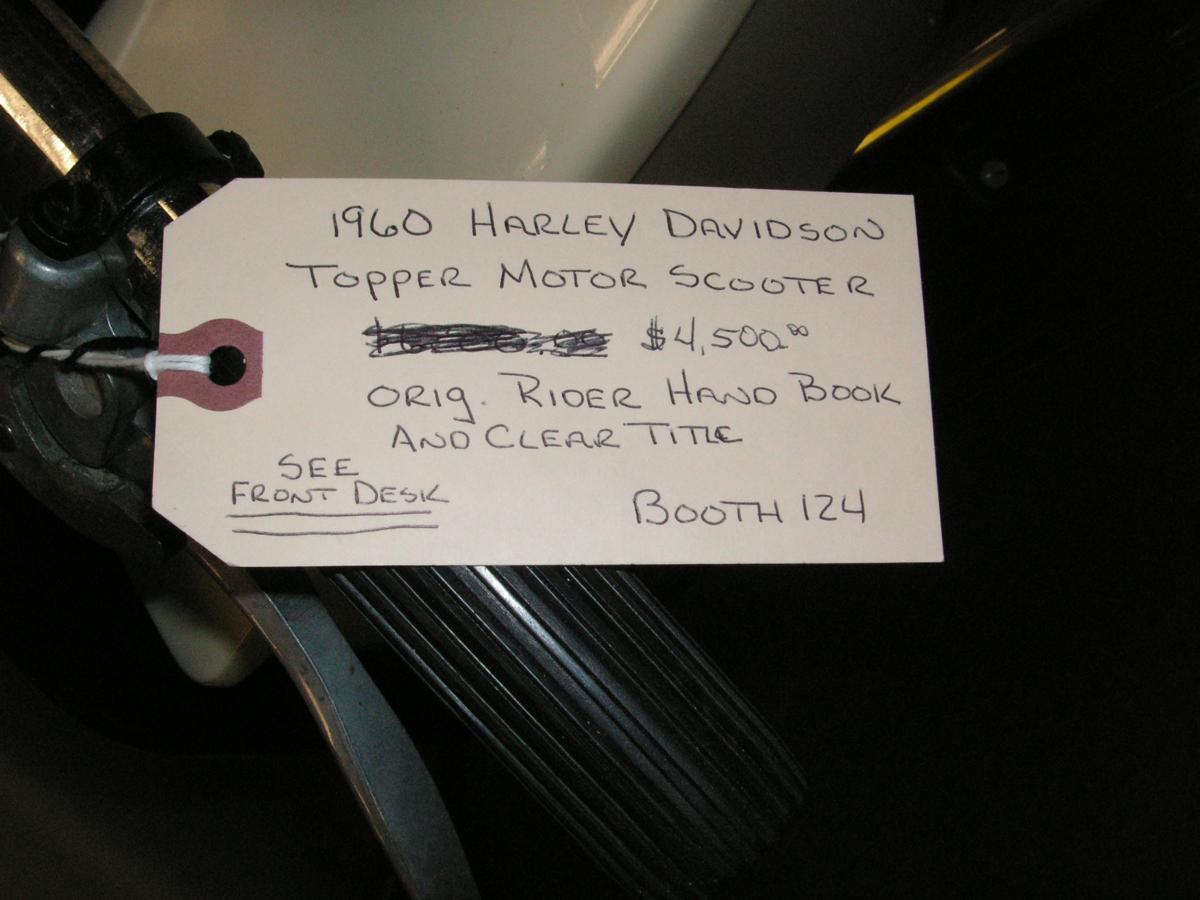 1960 HARLEY DAVIDSON
TOPPER MOTOR SCOOTER
$4,500.00
ORIG. RIDER HAND BOOK
AND CLEAR TITLE
SEE
FRONT DESK
BOOTH 124